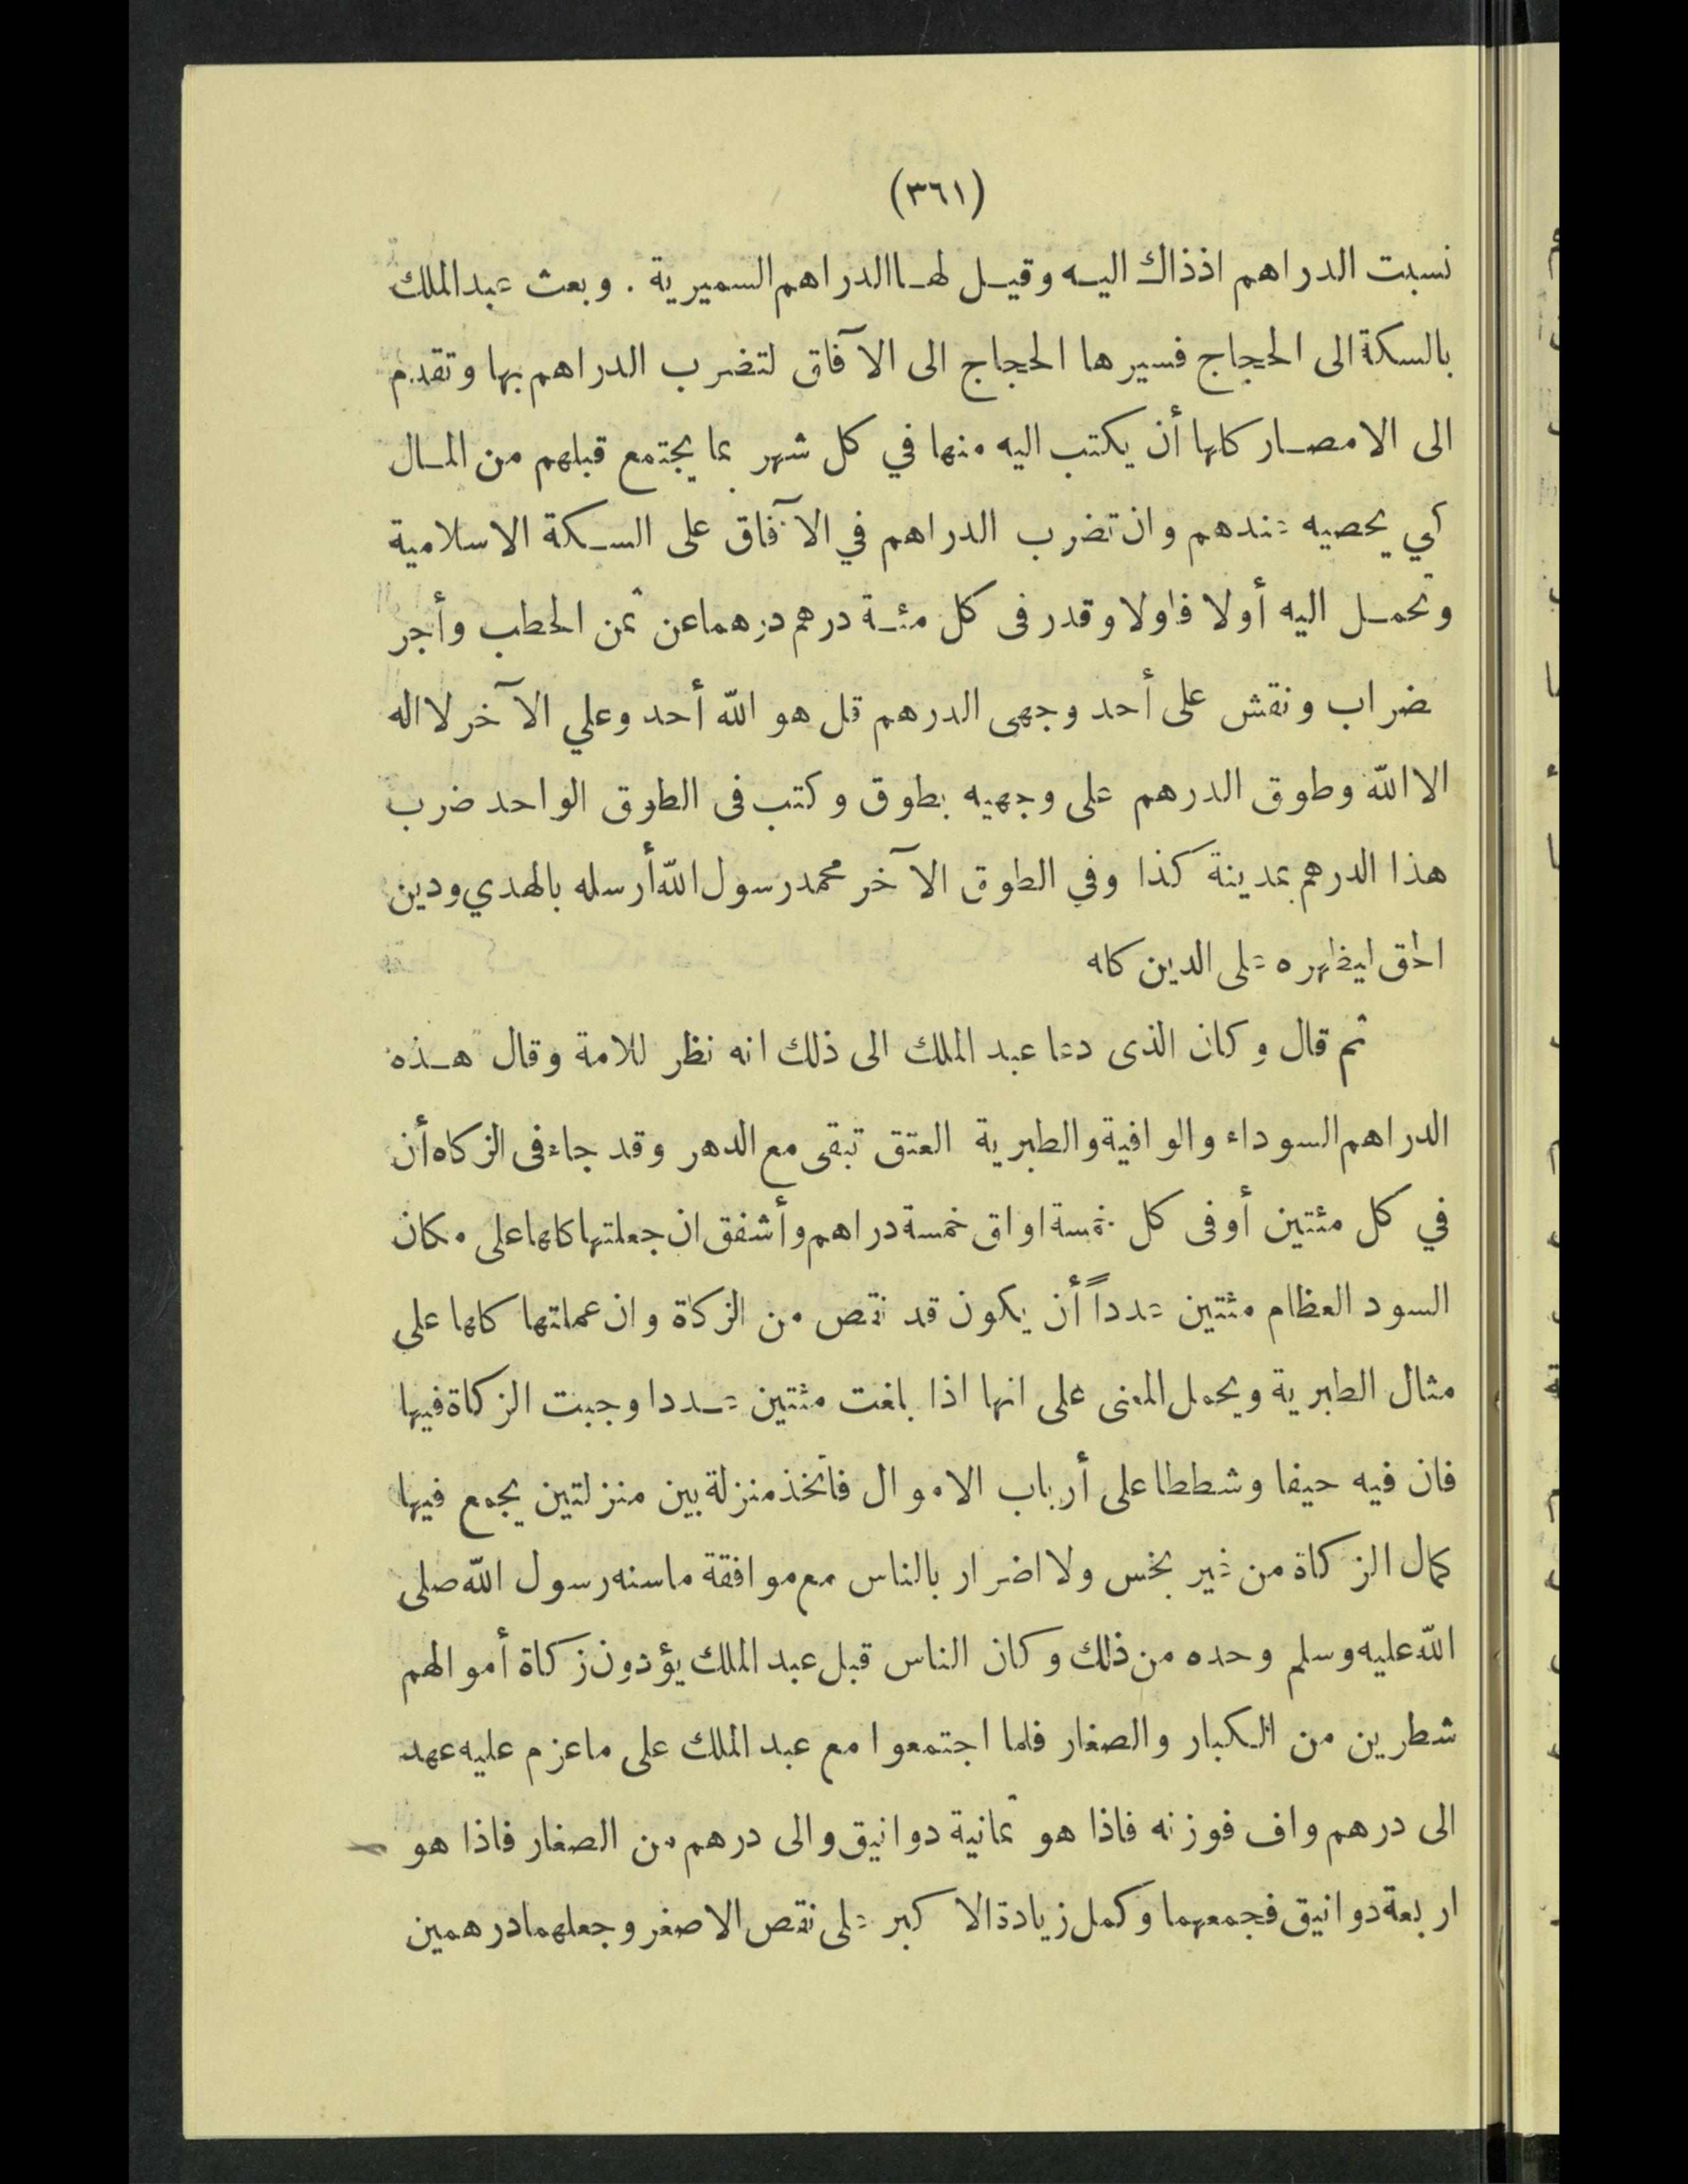 (٣٦١)
نسبت الدراهم اذذاك اليه وقيل لها الدراهم السميرية . وبعث عبد الملك
بالسكة الى الحجاج فسيرها الحجاج الى الآفاق لتضرب الدراهم بها وتقدم
الى الامصار كلها أن يكتب اليه منها في كل شهر بما يجتمع قبلهم من المال
كي يحصيه عندهم وان تضرب الدراهم في الآفاق على السكة الاسلامية
وتحمل اليه أولا فاولا وقدر فى كل مئة درهم درهما عن ثمن الحطب وأجر
ضراب ونقش على أحد وجهى الدرهم قل هو الله أحد وعلي الآخر لا اله
الا الله وطوق الدرهم على وجهيه بطوق وكتب فى الطوق الواحد ضرب
هذا الدرهم بمدينة كذا وفي الطوق الآخر محمد رسول الله أرسله بالهدي ودين
الحق ليظهره على الدين كله
ثم قال وكان الذى دعا عبد الملك الى ذلك انه نظر للامة وقال هذه
الدراهم السوداء والوافية والطبرية العتق تبقى مع الدهر وقد جاء فى الزكاه أن
في كل مئتين أو فى كل خمسة اواق خمسة دراهم وأشفق ان جعلتها كلها على مكان
السود العظام مئتين عدداً أن يكون قد نقص من الزكاة وان عملتها كلها علي
مثال الطبرية ويحمل المعنى على انها اذا بلغت مئتين عددا وجبت الزكاة فيها
فان فيه حيفا وشططا على أرباب الاموال فاتخذ منزلة بين منزلتين يجمع فيها
كمال الزكاة من غير بخس ولا اضرار بالناس مع موافقة ما سنه رسول الله صلى
الله عليه وسلم وحده من ذلك وكان الناس قبل عبد الملك يؤدون زكاة أموالهم
شطرين من الكبار والصغار فلما اجتمعوا مع عبد الملك على ما عزم عليه عهد
الى درهم واف فوزنه فاذا هو ثمانية دوانيق والى درهم من الصغار فاذا هو
اربعة دوانيق فجمعهما وكمل زيادة الاكبر على نقص الاصغر وجعلهما درهمين